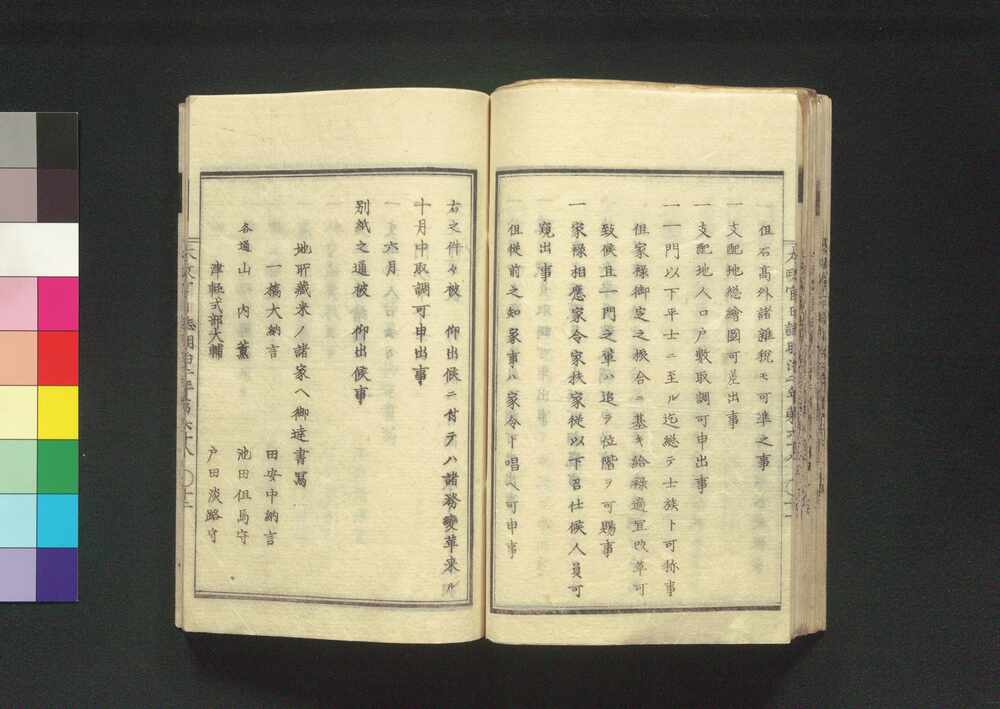 但石高外諸雑税モ可準之事
一支配地総繪圖可差出事
一支配地人口戸數取調可申出事
一一門以下平士ニ至ル迄総テ士族ト可称事
但家禄御定之振合ニ基キ給禄適宜改革可
致候且一門之輩ハ追テ位階ヲ可賜事
一家禄相應家令家扶家従以下召仕候人員可
窺出事
但従前之知家事ハ家令ト唱ヘ可申事
右之件々被　仰出候ニ付テハ諸務變革来ル
十月中取調可申出事
六月
別紙之通被　仰出候事
地所蔵米ノ諸家ヘ御達書冩
一橋大納言　田安中納言
各通山内　薫　池田但馬守
津軽式部大輔　戸田淡路守